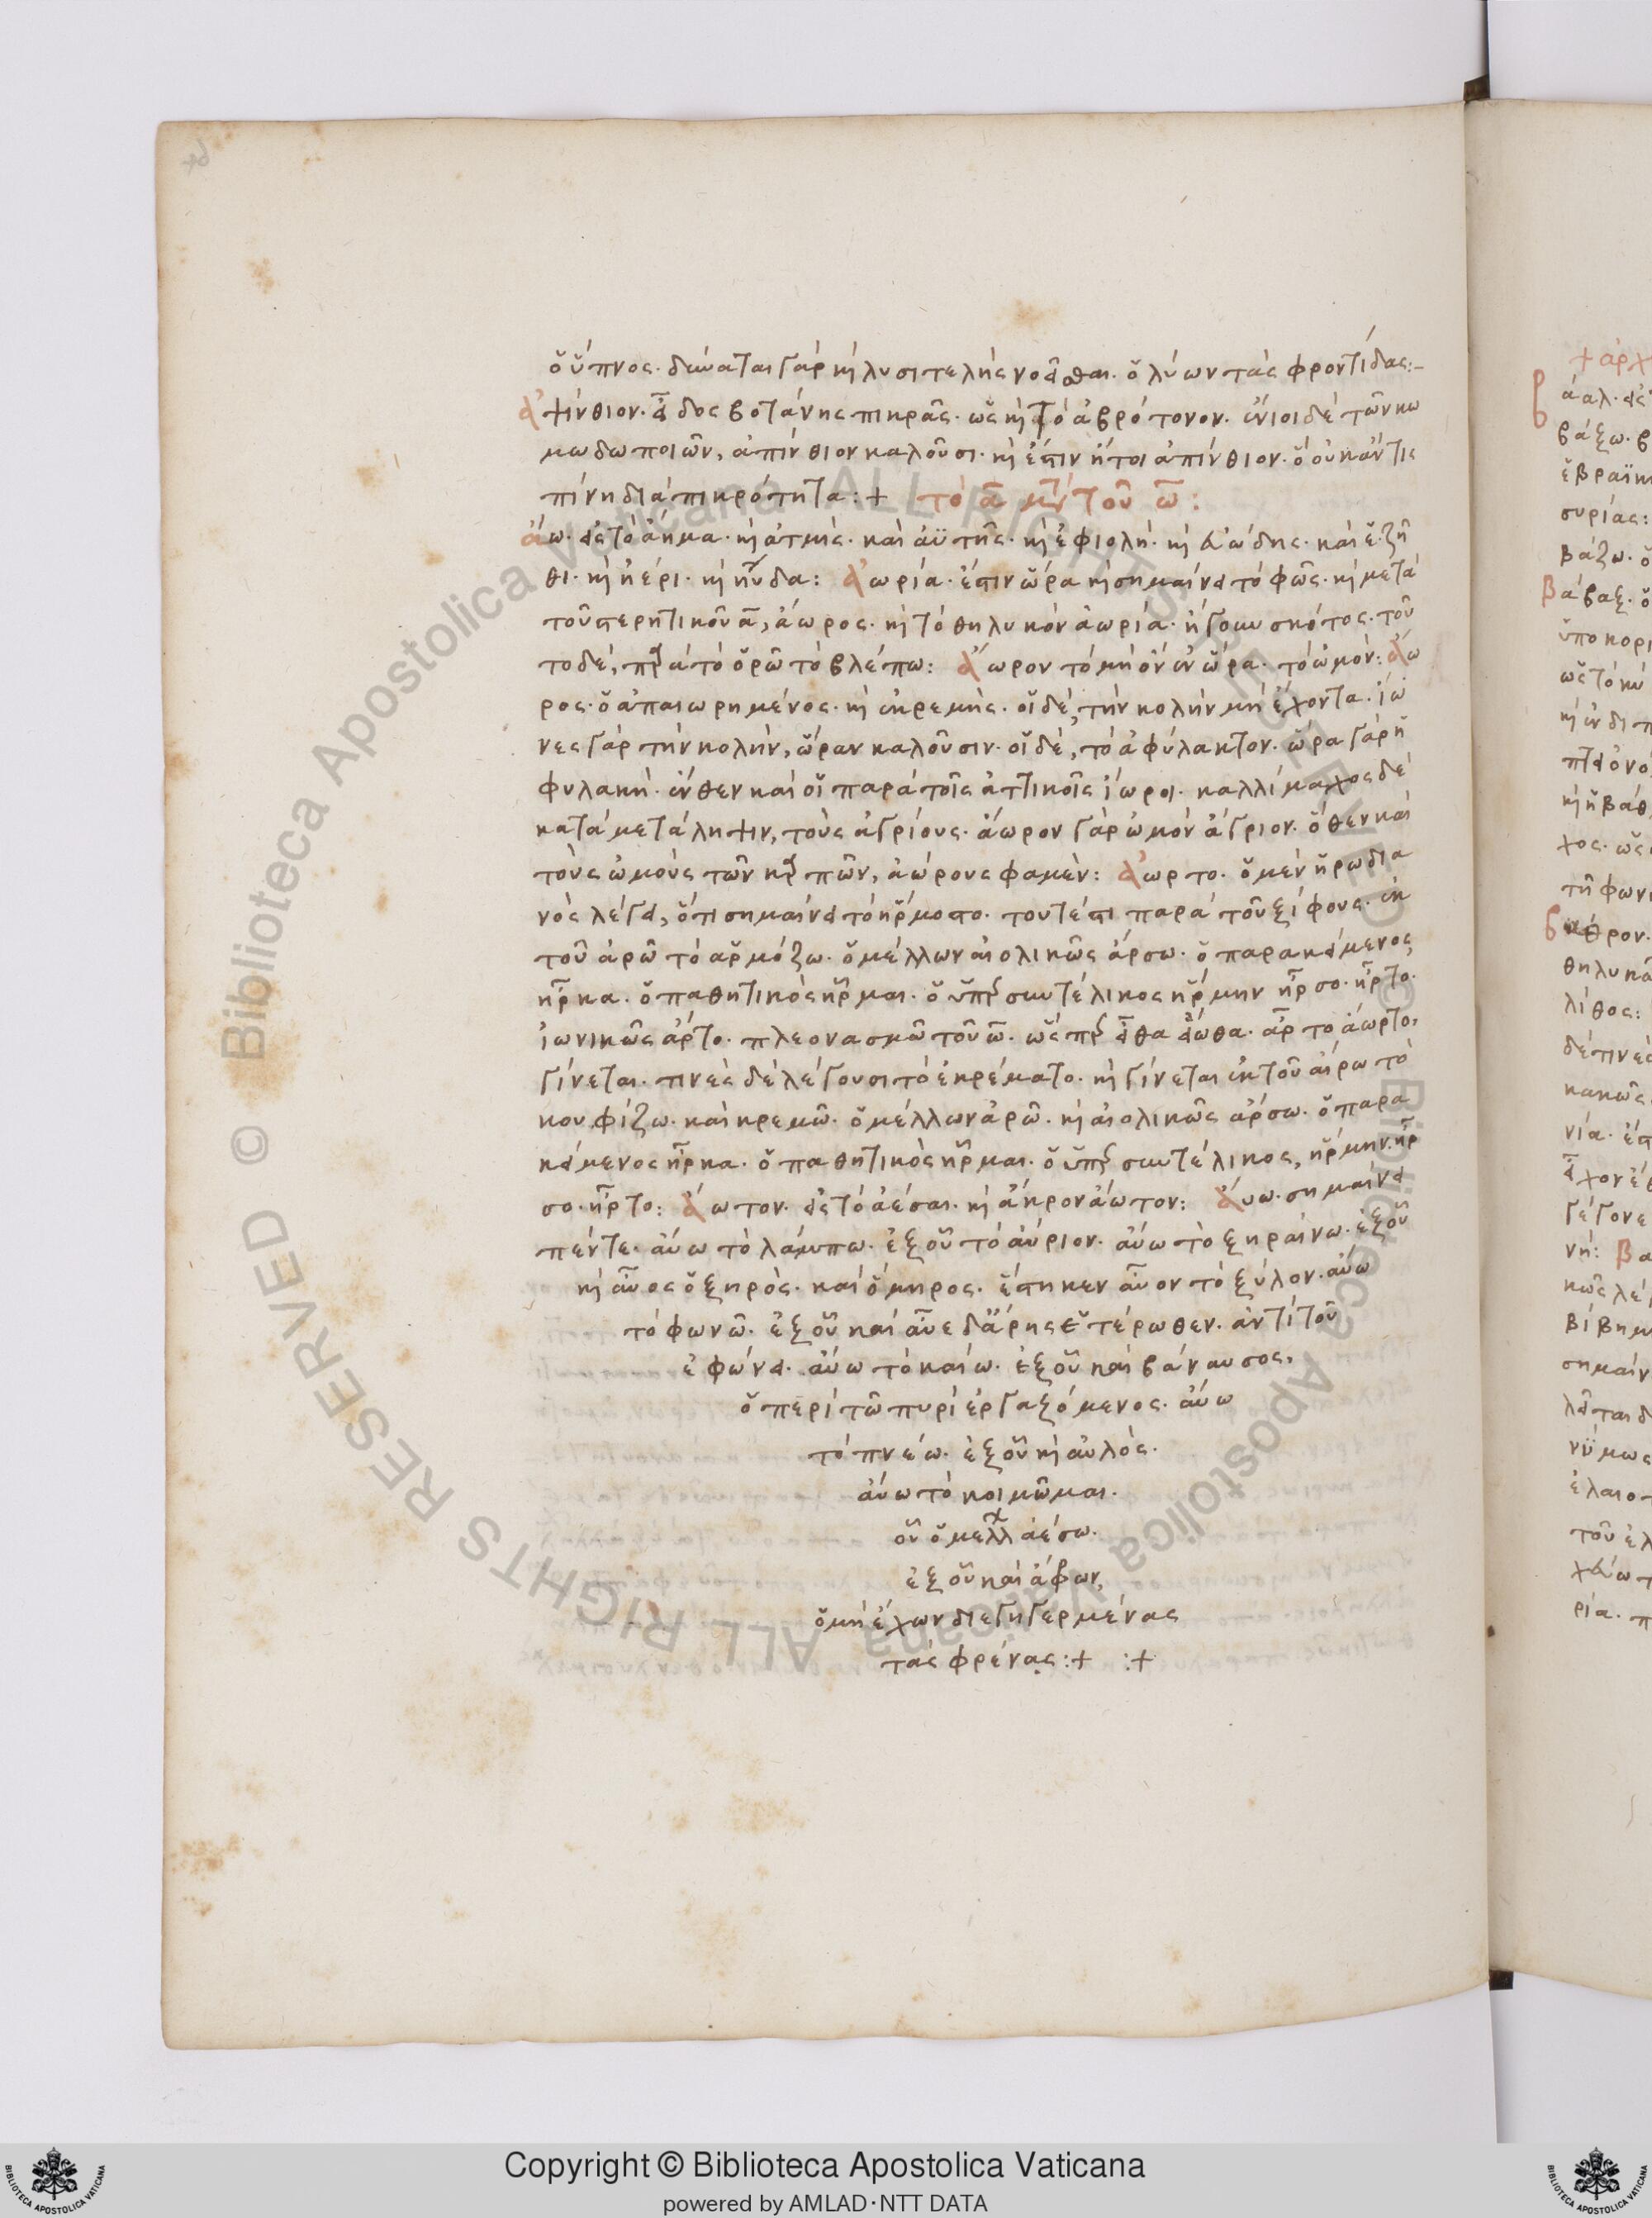 ὁ ὕπνος· δύναται γὰρ κὴ λυσιτελὴς νοεῖσθαι. ὁ λύων τὰς φροντίδας:-
ἀψίνθιον· εἶδος βοτάνης πικρᾶς· ὡς κὴ τὸ ἀβρότονον. ἔνιοι δὲ τῶν κω
μωδωποιῶν, ἀπίνθιον καλοῦσι· κὴ ἔστιν ἤτοι ἀπίνθιον. ὃ οὐκ ἄν τις
πίνη διὰ πικρότητα:+ τὸ α μ(ετὰ) τοῦ ω:
ἄω· εἰς τὸ ἄημα· κὴ ἀτμὶς· καὶ ἀϋτῆς· κὴ ἐφιολὴ· κὴ εἰώδης· καὶ ἔζη
θι· κὴ ἠέρι· κὴ ηὖδα: ἀωρία· ἔστιν ὥρα κὴ σημαίνει τὸ φῶς· κὴ μετὰ
τοῦ στερητικοῦ α, ἄωρος· κὴ τὸ θηλυκὸν ἀωρία· ἤγουν σκότος· τοῦ
το δὲ, παρὰ τὸ ὁρῶ τὸ βλέπω: ἄωρον τὸ μὴ ὂν ἐν ὥρα· τὸ ὠμὸν: ἄω
ρος· ὁ ἀπαιωρημένος· κὴ ἐκρεμὴς· οἱ δὲ, τὴν κολὴν μὴ ἔχοντα· ἰώ
νες γὰρ τὴν κολὴν, ὥραν καλοῦσιν· οἱ δὲ, τὸ ἀφύλακτον· ὥρα γὰρ ἡ
φυλακὴ· ἔνθεν καὶ οἱ παρὰ τοῖς ἀττικοῖς ἰωροι· καλλίμαχος δὲ
κατὰ μετάληψιν, τοὺς ἀγρίους· ἄωρον γὰρ ὠμὸν ἄγριον· ὅθεν καὶ
τοὺς ὠμοὺς τῶν καρπῶν, ἀώρους φαμὲν: ἄωρτο· ὁ μὲν ἡρωδια
νὸς λέγει, ὅτι σημαίνει τὸ ἥρμοστο· τουτέστι παρὰ τοῦ ξίφους· ἐκ
τοῦ ἀρῶ τὸ ἁρμόζω· ὁ μέλλων αἰολικῶς ἄρσω· ὁ παρακείμενος
ἦρκα· ὁ παθητικὸς ἧρμαι· ὁ ὑπερσυντέλικος ἥρμην ἦρσο· ἦρτο·
ἰωνικῶς ἄρτο· πλεονασμῶ τοῦ ω· ὥσπερ εἶθα εἴωθα· ἄρτο ἄωρτο,
γίνεται· τινὲς δὲ λέγουσι τὸ ἐκρέματο· κὴ γίνεται ἐκ τοῦ αἴρω τὸ
κουφίζω· καὶ κρεμῶ· ὁ μέλλων ἀρῶ· κὴ αἰολικῶς ἄρσω· ὁ παρα
κείμενος ἦρκα· ὁ παθητικὸς ἧρμαι· ὁ ὑπερσυντέλικος, ἥρμην· ἦρ
σο· ἦρτο: ἄωτον· εἰς τὸ ἀέσαι· κὴ ἄκρον ἄωτον: ἄυω· σημαίνει
πέντε· αὔω τὸ λάμπω· ἐξ οὗ τὸ αὔριον· αὔω τὸ ξηραίνω· ἐξ οὗ
κὴ αὖος ὁ ξηρὸς· καὶ ὅμηρος· ἕστηκεν αὖον τὸ ξύλον· αὔω
τὸ φωνῶ· ἐξ οὗ καὶ αὖε δ' ἄρης ἑτέρωθεν· ἀντὶ τοῦ
ἐφώνει· αὔω τὸ καίω· ἐξ οὗ καὶ βάναυσος,
ὁ περὶ τῶ πυρὶ ἐργαζόμενος· αὔω
τὸ πνέω· ἐξ οὗ κὴ αὐλὸς·
αὔω τὸ κοιμῶμαι·
οὗ ὁ μέλλ ἀέσω·
ἐξ οὗ καὶ ἄφων,
ὁ μὴ ἔχων διεγηγερμένας
τὰς φρένας:+ :+